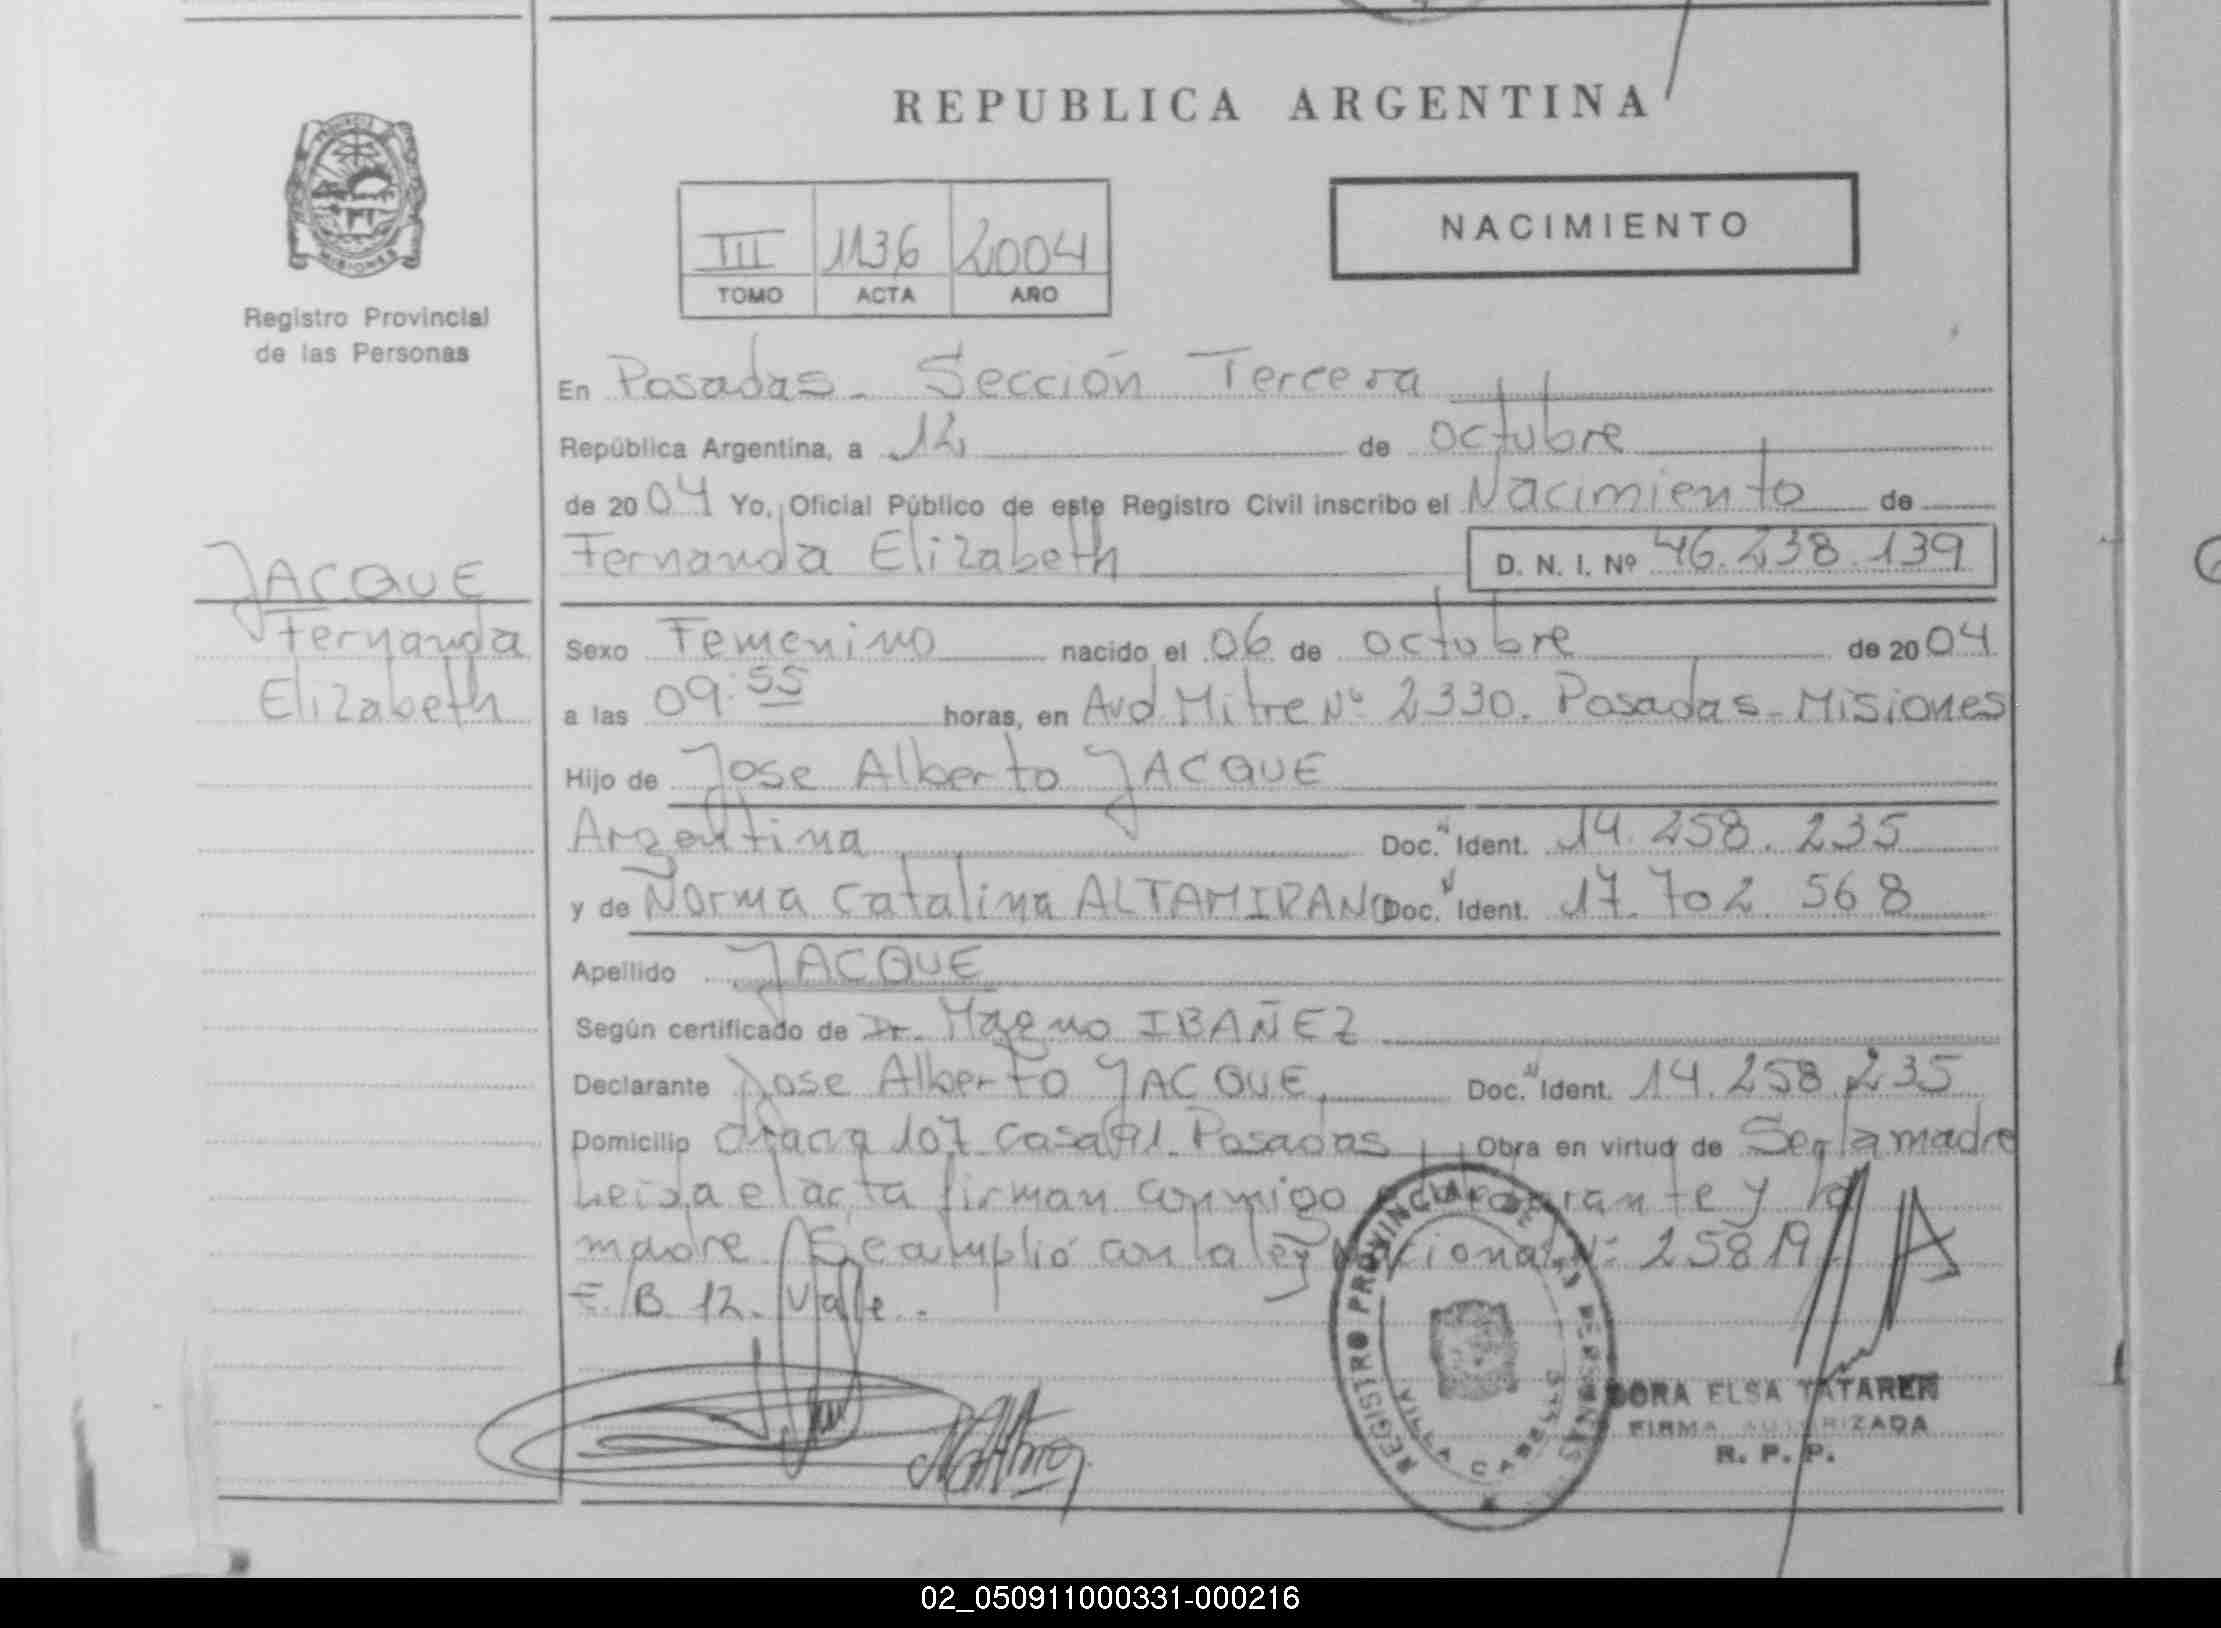 REPUBLICA ARGENTINA
PROVINCIA
MISIONES
Registro Provincial
de las Personas
NACIMIENTO
III 1136 2004
TOMO ACTA AÑO
En Posadas - Sección Tercera
República Argentina, a 12 de octubre
de 2004 Yo, Oficial Público de este Registro Civil inscribo el Nacimiento de
Fernanda Elizabeth D. N. I. Nº 46.238.139
JACQUE
Fernanda
Elizabeth
Sexo Femenino nacido el 06 de octubre de 2004
a las 09:55 horas, en Avd Mitre Nº 2330. Posadas - Misiones
Hijo de Jose Alberto JACQUE
Argentina Doc. Ident. 14.258.235
y de Norma Catalina ALTAMIRANO Doc. Ident. 17.702.568
Apellido JACQUE
Según certificado de Dr. Magno IBAÑEZ
Declarante Jose Alberto JACQUE Doc. Ident. 14.258.235
Domicilio chacra 107 casa 91. Posadas Obra en virtud de Ser la madre
Leída el acta firman conmigo el declarante y la
madre. Se cumplió con la ley nacional Nº 25819.
E. B 12. Vale.
REGISTRO PROVINCIAL DE LAS PERSONAS
VILLA CABELLO
DORA ELSA TATAREN
FIRMA AUTORIZADA
R. P. P.
02_050911000331-000216